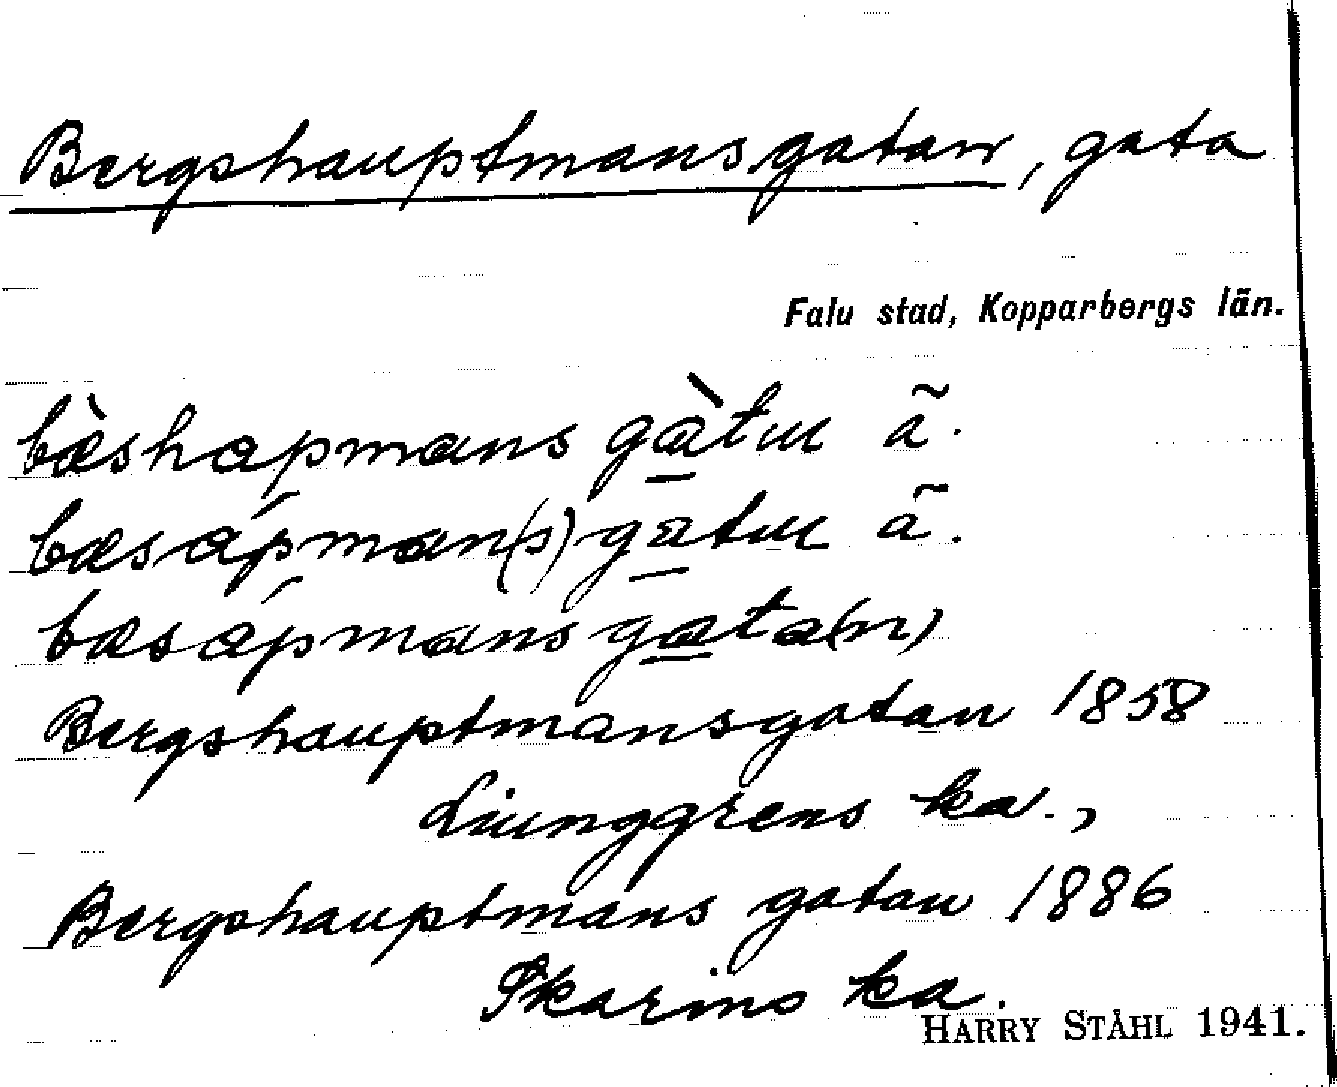 Bergshauptmansgatan, gata
Falu stad, Kopparbergs län.
bæ̀shapmans gàtuı ã.
bæsápman(s) gatuı ã.
bæsápmans gata(n)
Bergshauptmansgatan 1858
Liunggrens ka.,
Bergshauptmans gatan 1886
Skarins ka.
HARRY STÅHL 1941.